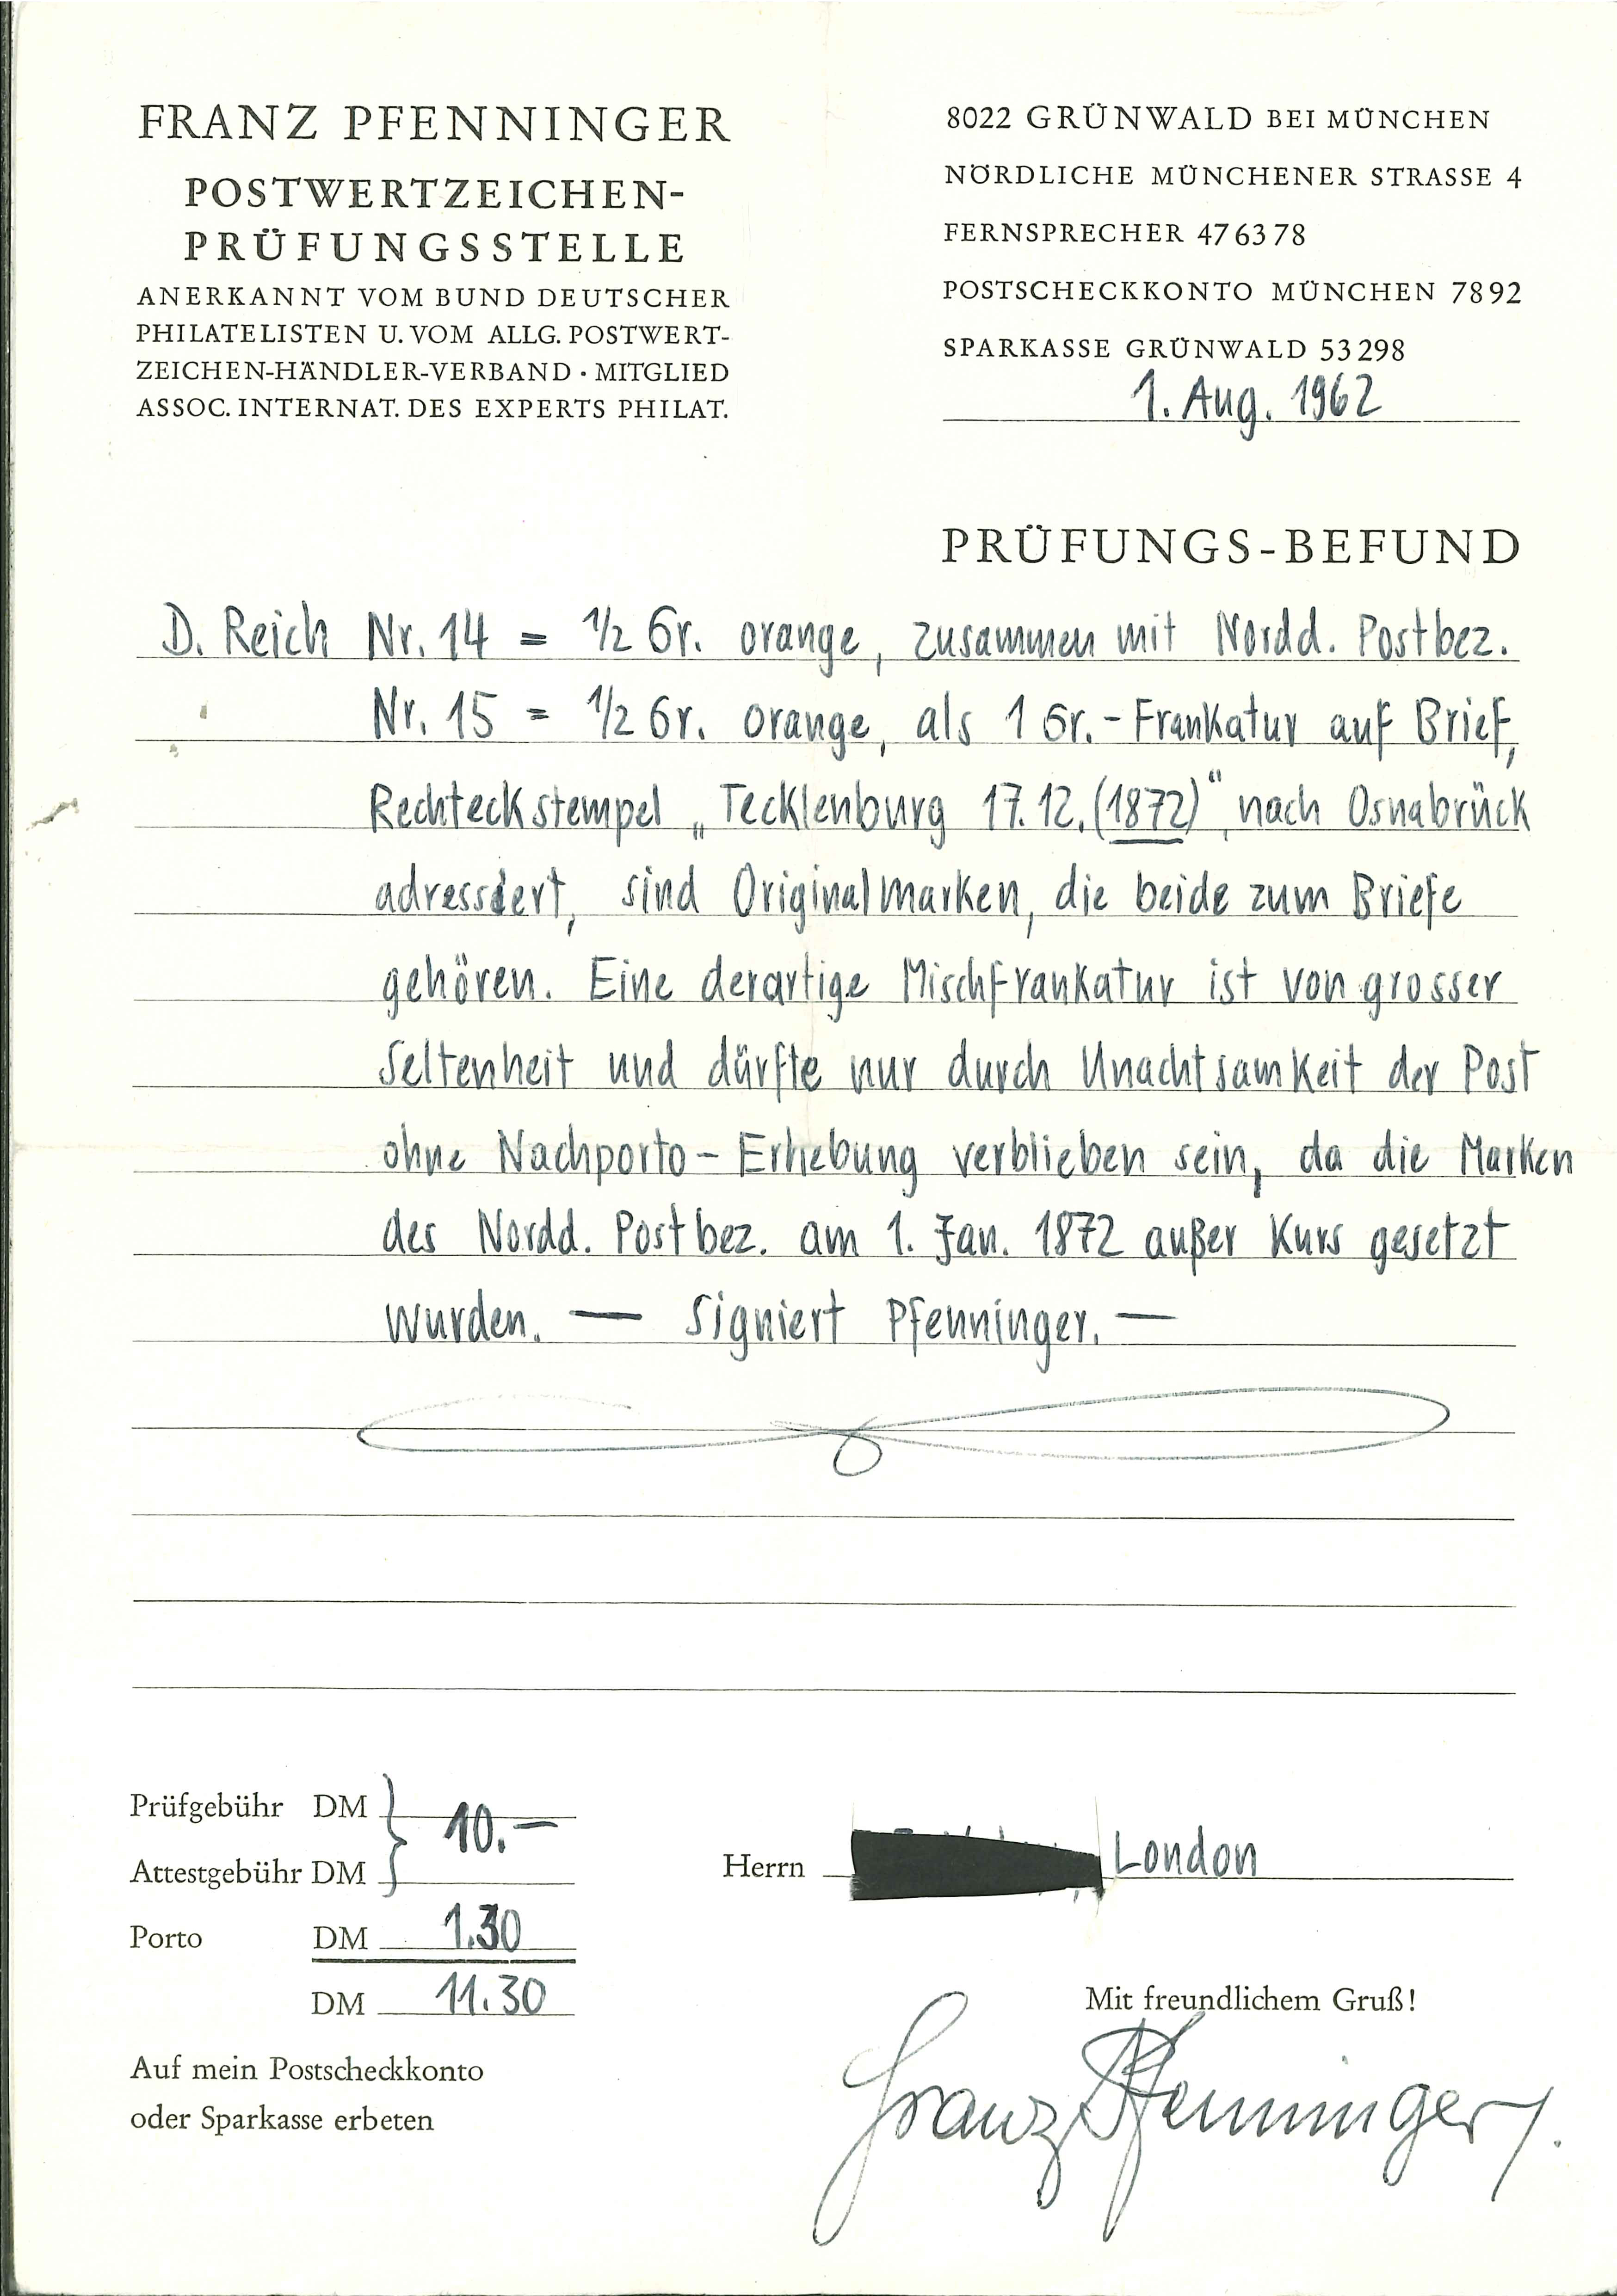 FRANZ PFENNINGER
POSTWERTZEICHEN-
PRÜFUNGSSTELLE
ANERKANNT VOM BUND DEUTSCHER
PHILATELISTEN U. VOM ALLG. POSTWERT-
ZEICHEN-HÄNDLER-VERBAND · MITGLIED
ASSOC. INTERNAT. DES EXPERTS PHILAT.
8022 GRÜNWALD BEI MÜNCHEN
NÖRDLICHE MÜNCHENER STRASSE 4
FERNSPRECHER 47 63 78
POSTSCHECKKONTO MÜNCHEN 78 92
SPARKASSE GRÜNWALD 53 298
1. Aug. 1962
PRÜFUNGS-BEFUND
D. Reich Nr. 14 = 1/2 Gr. orange, zusammen mit Nordd. Postbez.
Nr. 15 = 1/2 Gr. orange, als 1 Gr.-Frankatur auf Brief,
Rechteckstempel „Tecklenburg 17.12.(1872)“, nach Osnabrück
adressiert, sind Originalmarken, die beide zum Briefe
gehören. Eine derartige Mischfrankatur ist von grosser
Seltenheit und dürfte nur durch Unachtsamkeit der Post
ohne Nachporto-Erhebung verblieben sein, da die Marken
des Nordd. Postbez. am 1. Jan. 1872 außer Kurs gesetzt
wurden. — Signiert Pfenninger. —
Prüfgebühr DM
10.—
Attestgebühr DM
Porto DM 1.30
DM 11.30
Auf mein Postscheckkonto
oder Sparkasse erbeten
Herrn London
Mit freundlichem Gruß!
Franz Pfenninger